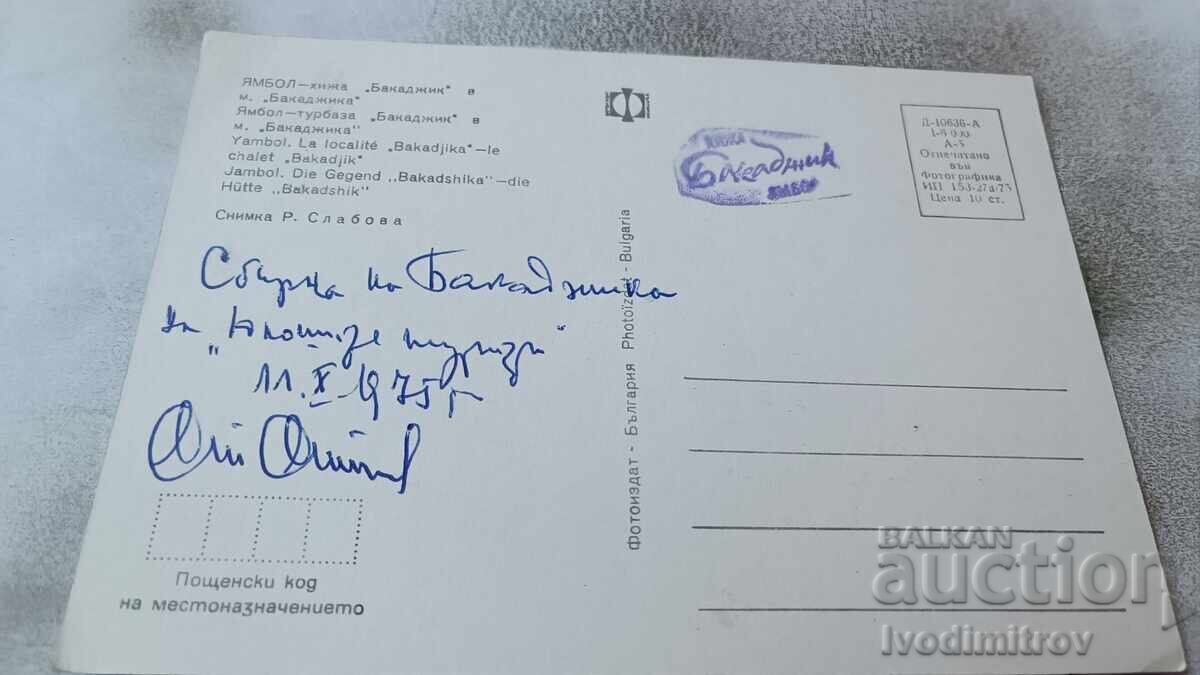 ЯМБОЛ—хижа „Бакаджик" в
м. „Бакаджика"
Ямбол—турбаза „Бакаджик" в
м. „Бакаджика"
Yambol. La localité „Bakadjika"—le
chalet „Bakadjik"
Jambol. Die Gegend ,,Bakadshika"—die
Hütte ,,Bakadshik"
Снимка Р. Слабова
Сбирка на Бакаджика
на
11.X.1975 г
Пощенски код
на местоназначението
Фотоиздат - България Photoizdat - Bulgaria
ХИЖА
Бакаджик
ЯМБОЛ
Д-10636-А
А-5
Отпечатано
във
Фотографика
ИП 153-27а-73
Цена 10 ст.
BALKAN
auction
Ivodimitrov